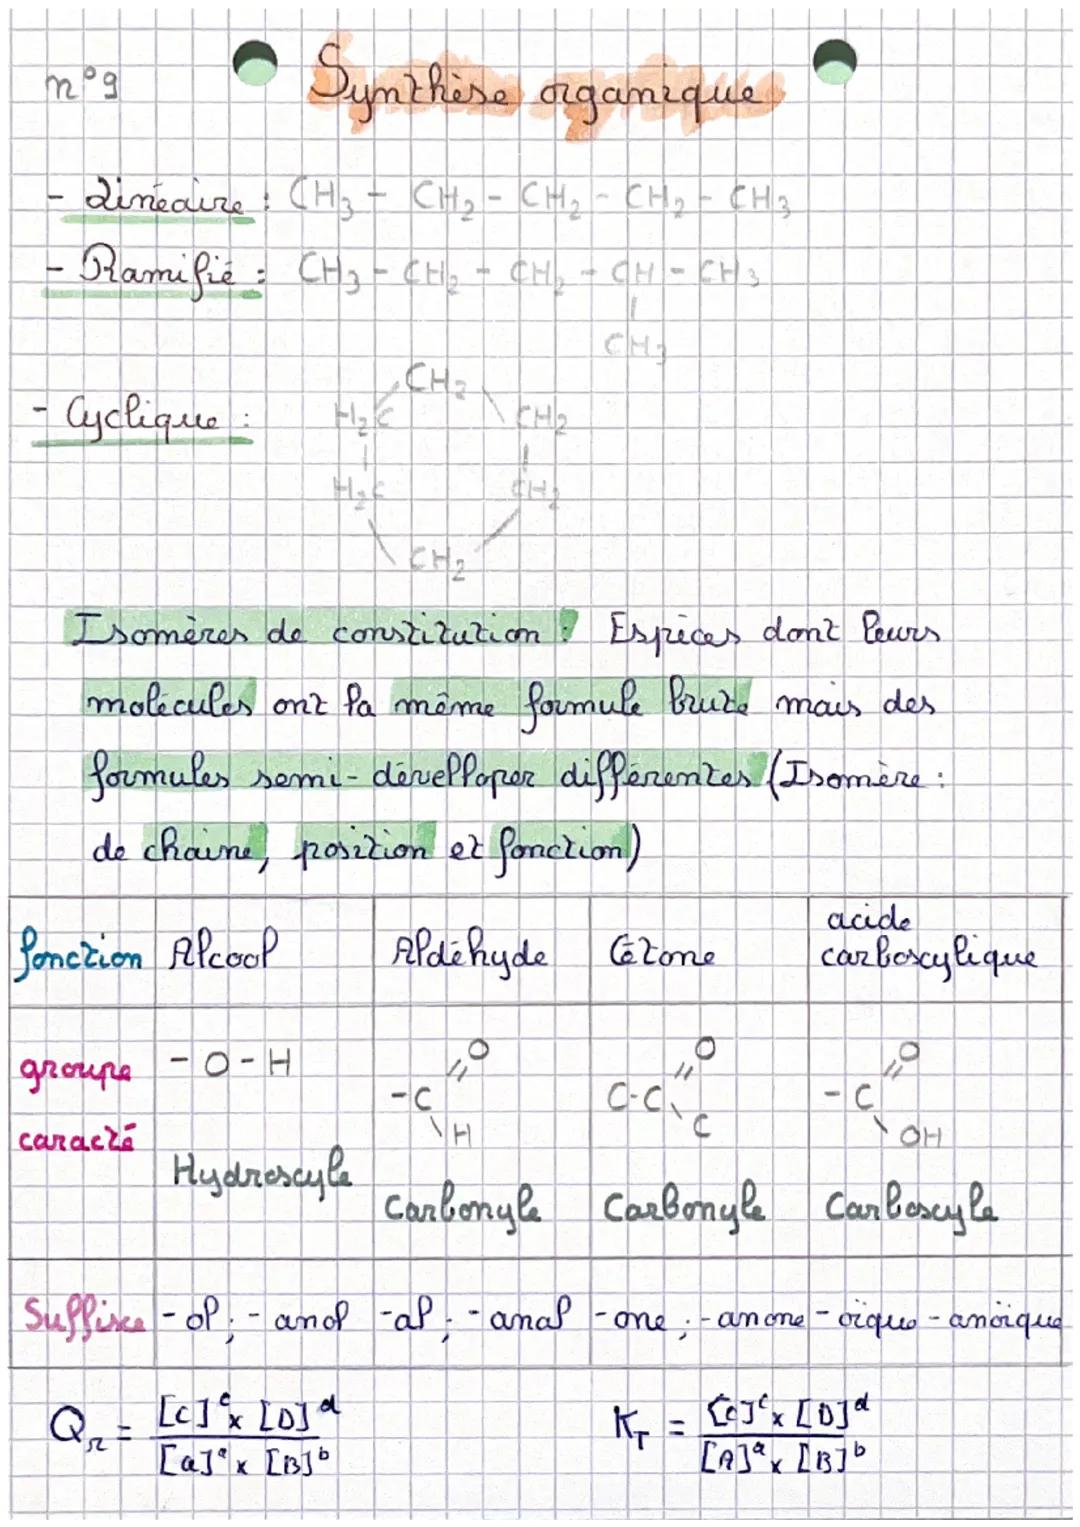 n°9
Synthèse organique
- Linéaire : CH₃ - CH₂ - CH₂ - CH₂ - CH₃
- Ramifié : CH₃ - CH₂ - CH₂ - CH - CH₃
CH₃
CH₂
- Cyclique : H₂C CH₂
H₂C CH₂
CH₂
Isomères de constitution : Espèces dont leurs
molécules ont la même formule brute mais des
formules semi-dévelloper différentes (Isomère :
de chaine, position et fonction)
fonction Alcool Aldéhyde Cétone acide carboxylique
groupe caracté
- O - H
Hydroxyle
-C=O \H
Carbonyle
C-C=O \C
Carbonyle
-C=O \OH
Carboxyle
Suffixe -ol ; -anol -al ; -anal -one ; -anone -oïque -anoïque
Qr = [C]ᶜ x [D]ᵈ / [a]ᵃ x [B]ᵇ
K_T = [C]ᶜ x [D]ᵈ / [A]ᵃ x [B]ᵇ